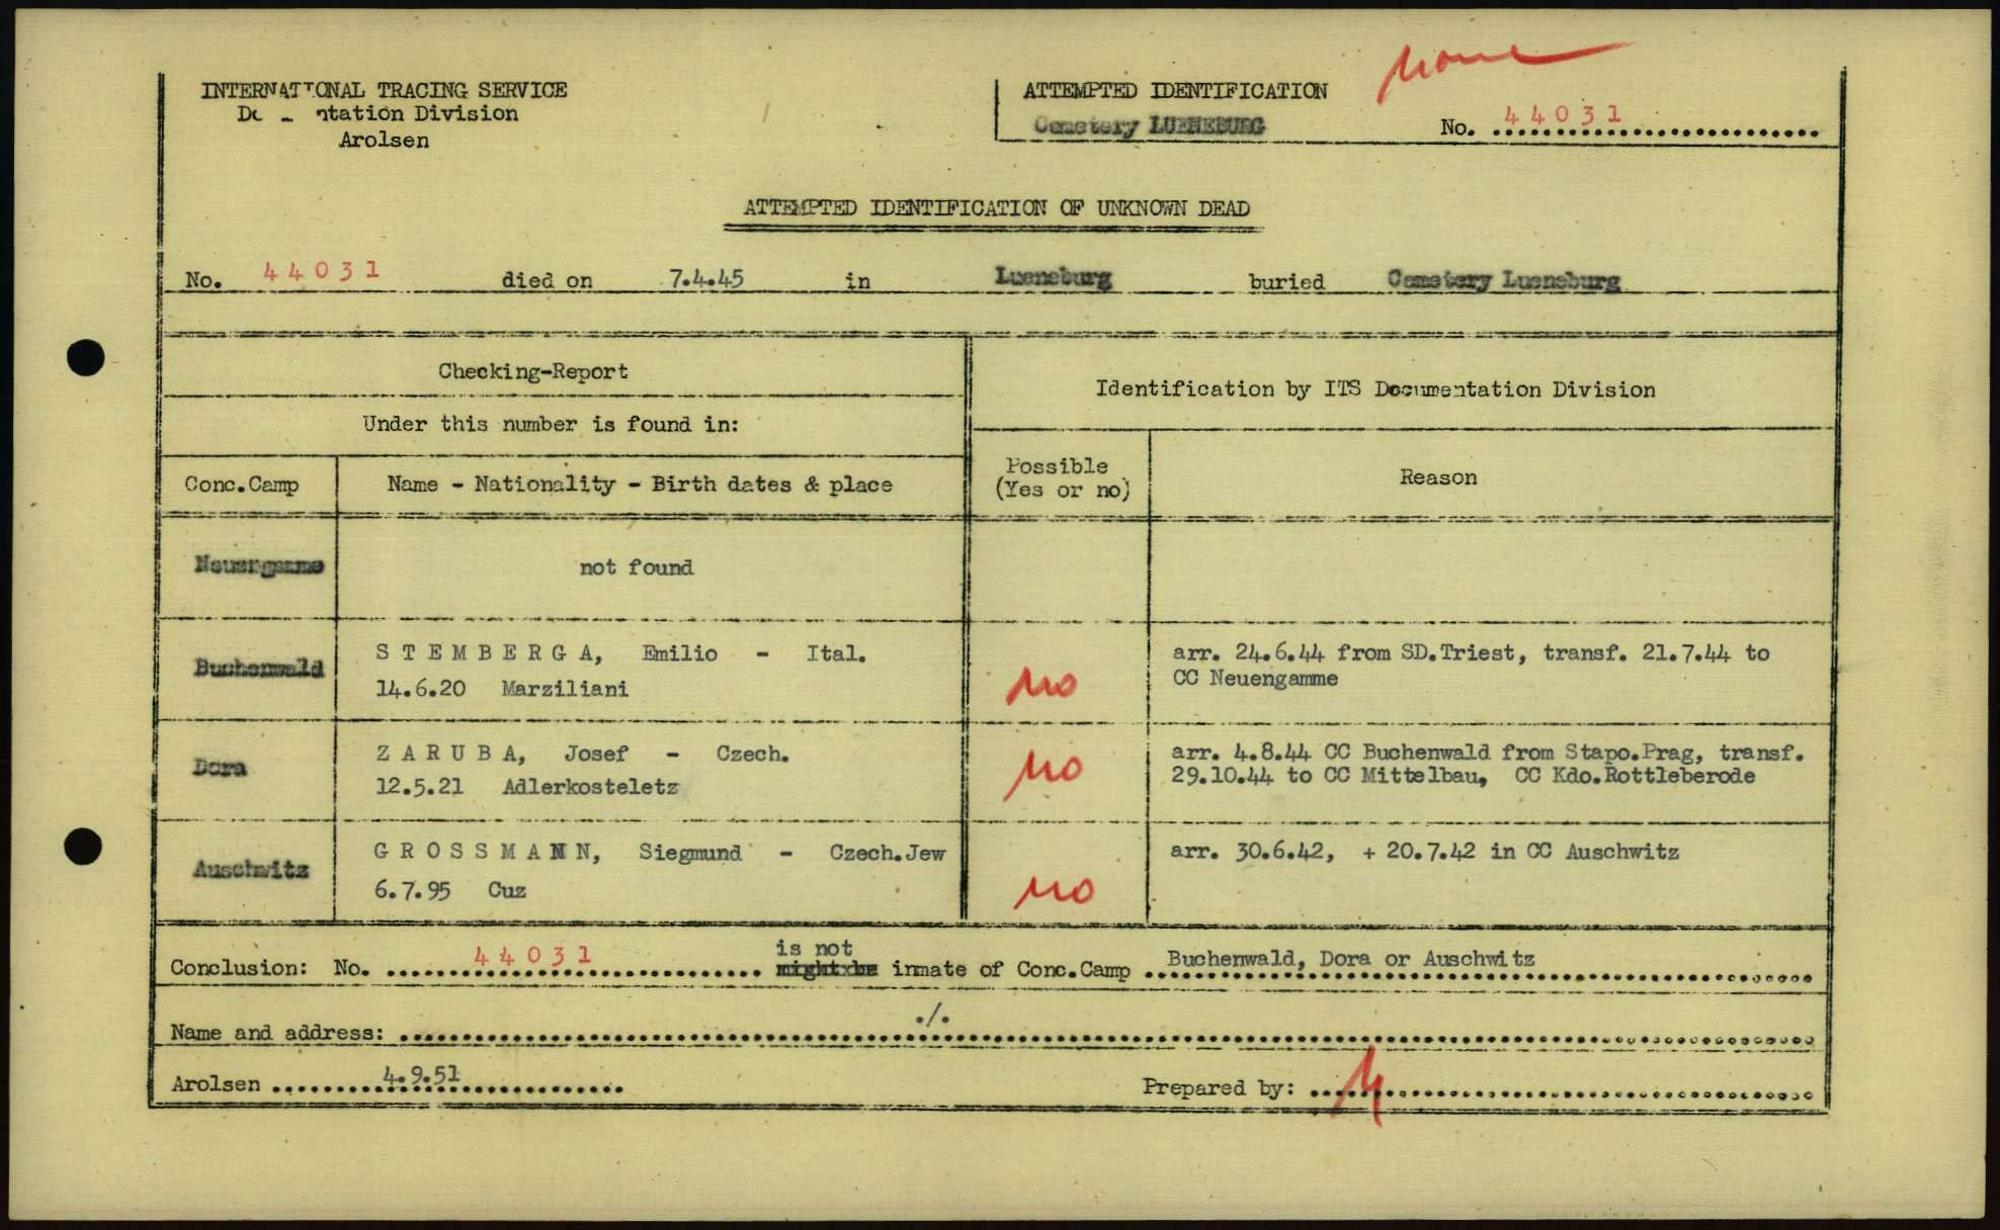 none
INTERNATIONAL TRACING SERVICE
Documentation Division
Arolsen
ATTEMPTED IDENTIFICATION
Cemetery LUENEBURG
No. 44031
ATTEMPTED IDENTIFICATION OF UNKNOWN DEAD
No. 44031 died on 7.4.45 in Lueneburg buried Cemetery Lueneburg
Checking-Report
Identification by ITS Documentation Division
Under this number is found in:
Conc.Camp Name - Nationality - Birth dates & place Possible (Yes or no) Reason
Neuengamme not found
Buchenwald STEMBERGA, Emilio - Ital.
14.6.20 Marziliani
no
arr. 24.6.44 from SD.Triest, transf. 21.7.44 to
CC Neuengamme
Dora ZARUBA, Josef - Czech.
12.5.21 Adlerkosteletz
no
arr. 4.8.44 CC Buchenwald from Stapo.Prag, transf.
29.10.44 to CC Mittelbau, CC Kdo.Rottleberode
Auschwitz GROSSMANN, Siegmund - Czech.Jew
6.7.95 Cuz
no
arr. 30.6.42, + 20.7.42 in CC Auschwitz
is not
Conclusion: No. 44031 might be inmate of Conc.Camp Buchenwald, Dora or Auschwitz
Name and address: ./.
Arolsen 4.9.51 Prepared by: